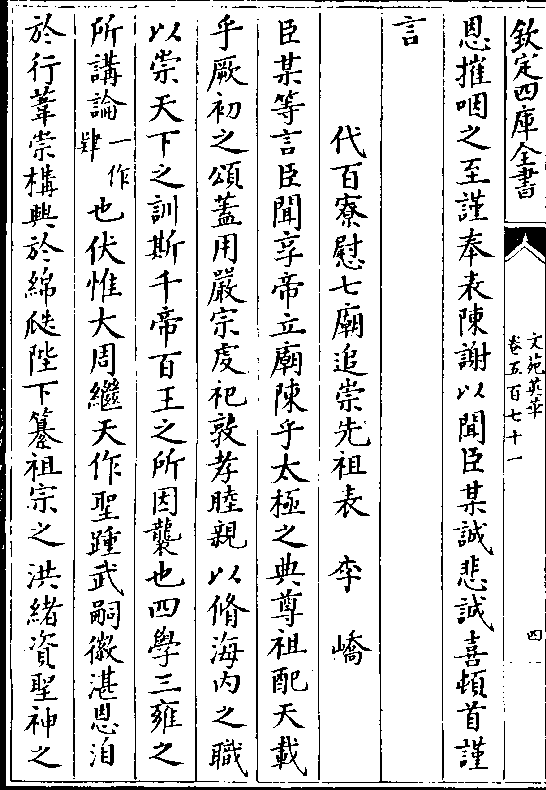 欽定四庫全書
文苑英華
卷五百七十一
四
恩摧咽之至謹奉表陳謝以聞臣某誠悲誠喜頓首謹
言
代百寮慰七廟追崇先祖表 李嶠
臣某等言臣聞享帝立廟陳乎太極之典尊祖配天載
乎厥初之頌蓋用嚴宗䖍祀敦孝睦親以脩海内之職
以崇天下之訓斯千帝百王之所因襲也四學三雍之
所講論一作肄也伏惟大周繼天作聖踵武嗣徽湛恩洎
於行葦崇構興於綿瓞陛下纂祖宗之洪緒資聖神之